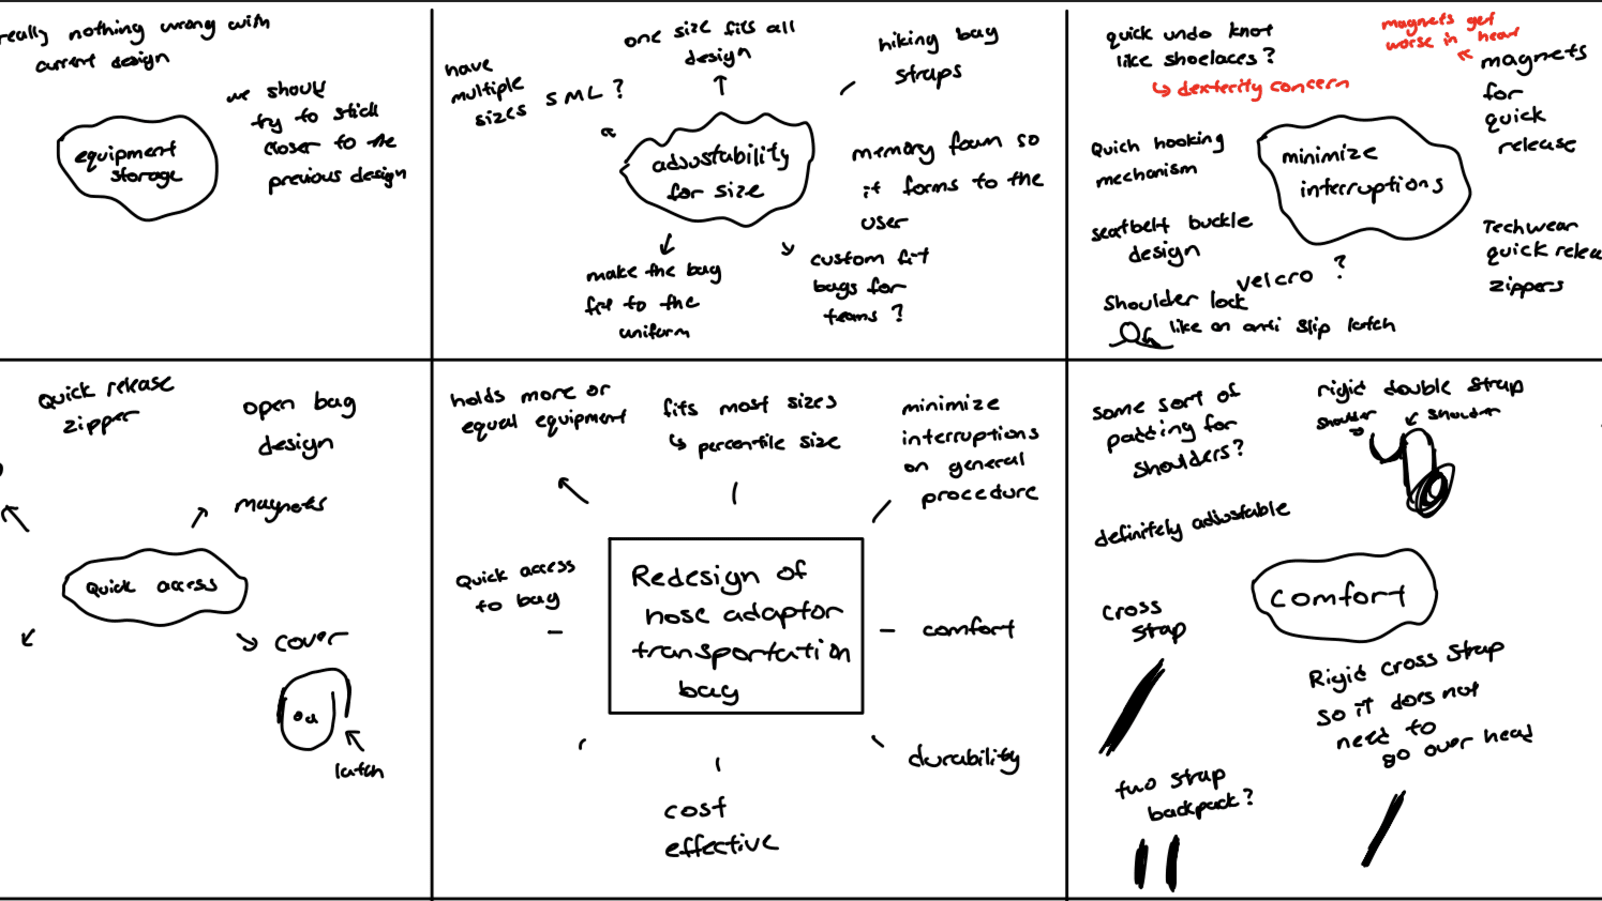 really nothing wrong with
current design
we should
try to stick
closer to the
previous design
equipment
storage
one size fits all
design
have
multiple
sizes SML ?
hiking bag
straps
adjustability
for size
memory foam so
it forms to the
user
make the bag
fit to the
uniform
custom fit
bags for
teams ?
quick undo knot
like shoelaces ?
↳ dexterity concern
magnets get
worse in heat
magnets
for
quick
release
Quick hooking
mechanism
minimize
interruptions
seatbelt buckle
design
velcro ?
Shoulder lock
like an anti slip latch
Techwear
quick relea
zippers
Quick release
zipper
open bag
design
magnets
Quick access
cover
latch
holds more or
equal equipment
fits most sizes
↳ percentile size
minimize
interruptions
on general
procedure
Quick access
to bag
Redesign of
hose adaptor
transportation
bag
comfort
durability
cost
effective
some sort of
padding for
shoulders?
rigid double strap
shoulder
shoulder
definitely adjustable
cross
strap
comfort
Rigid cross strap
so it does not
need to
go over head
two strap
backpack?